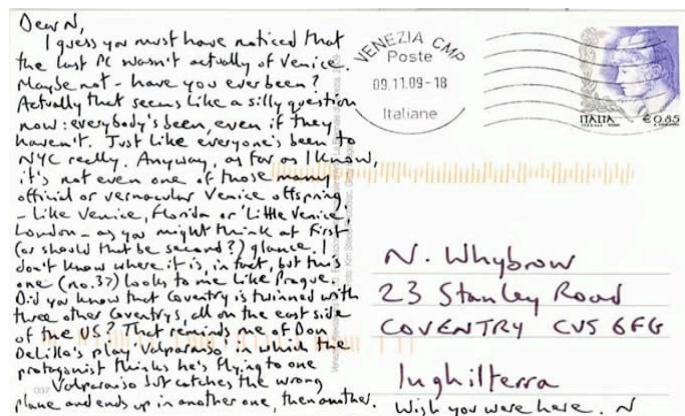 Dear N,
I guess you must have noticed that
the last PC wasn't actually of Venice.
Maybe not - have you ever been?
Actually that seems like a silly question
now: everybody's been, even if they
haven't. Just like everyone's been to
NYC really. Anyway, as far as I know,
it's not even one of those many
official or vernacular Venice offspring
- like Venice, Florida or 'Little Venice',
London - as you might think at first
(or should that be second?) glance. I
don't know where it is, in fact, but this
one (no.3?) looks to me like Prague.
Did you know that Coventry is twinned with
three other Coventrys, all on the east side
of the US? That reminds me of Don
DeLillo's play Valparaiso, in which the
protagonist thinks he's flying to one
Valparaiso but catches the wrong
plane and ends up in another one, then another.
Wish you were here, N
VENEZIA CMP
Poste
09.11.09-18
Italiane
ITALIA
€0,85
N. Whybrow
23 Stanley Road
COVENTRY CV5 6FG
Inghilterra
007